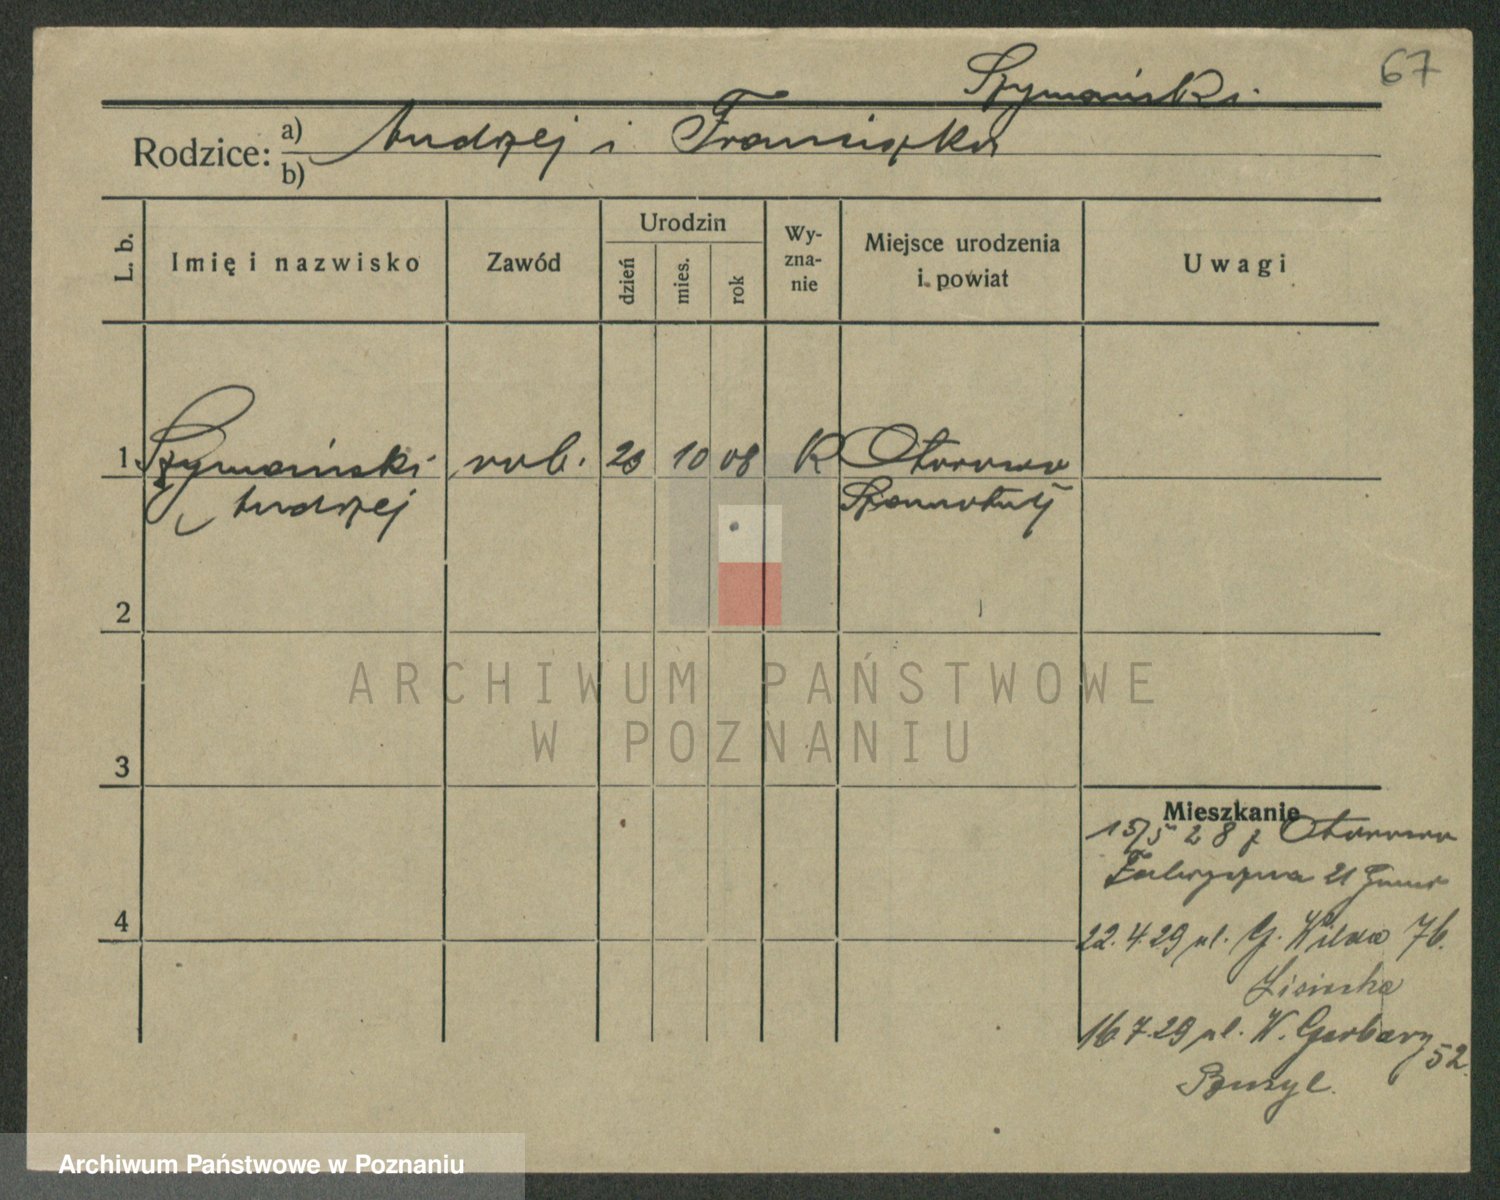 67
Szymański
Rodzice: a) Andrzej i Franciszka
b)
L. b.
Imię i nazwisko
Zawód
Urodzin
dzień
mies.
rok
Wy-
zna-
nie
Miejsce urodzenia
i powiat
Uwagi
1 Szymański rob. 23 10 08 R Otorowo
Andrzej Szamotuły
2
3
4
Mieszkanie
15/5 28 z Otorowo
Fabryczna 21
22.4.29 ul. G. Wilda 76.
16.7.29 ul. W. Garbary
52.
ARCHIWUM PAŃSTWOWE
W POZNANIU
Archiwum Państwowe w Poznaniu